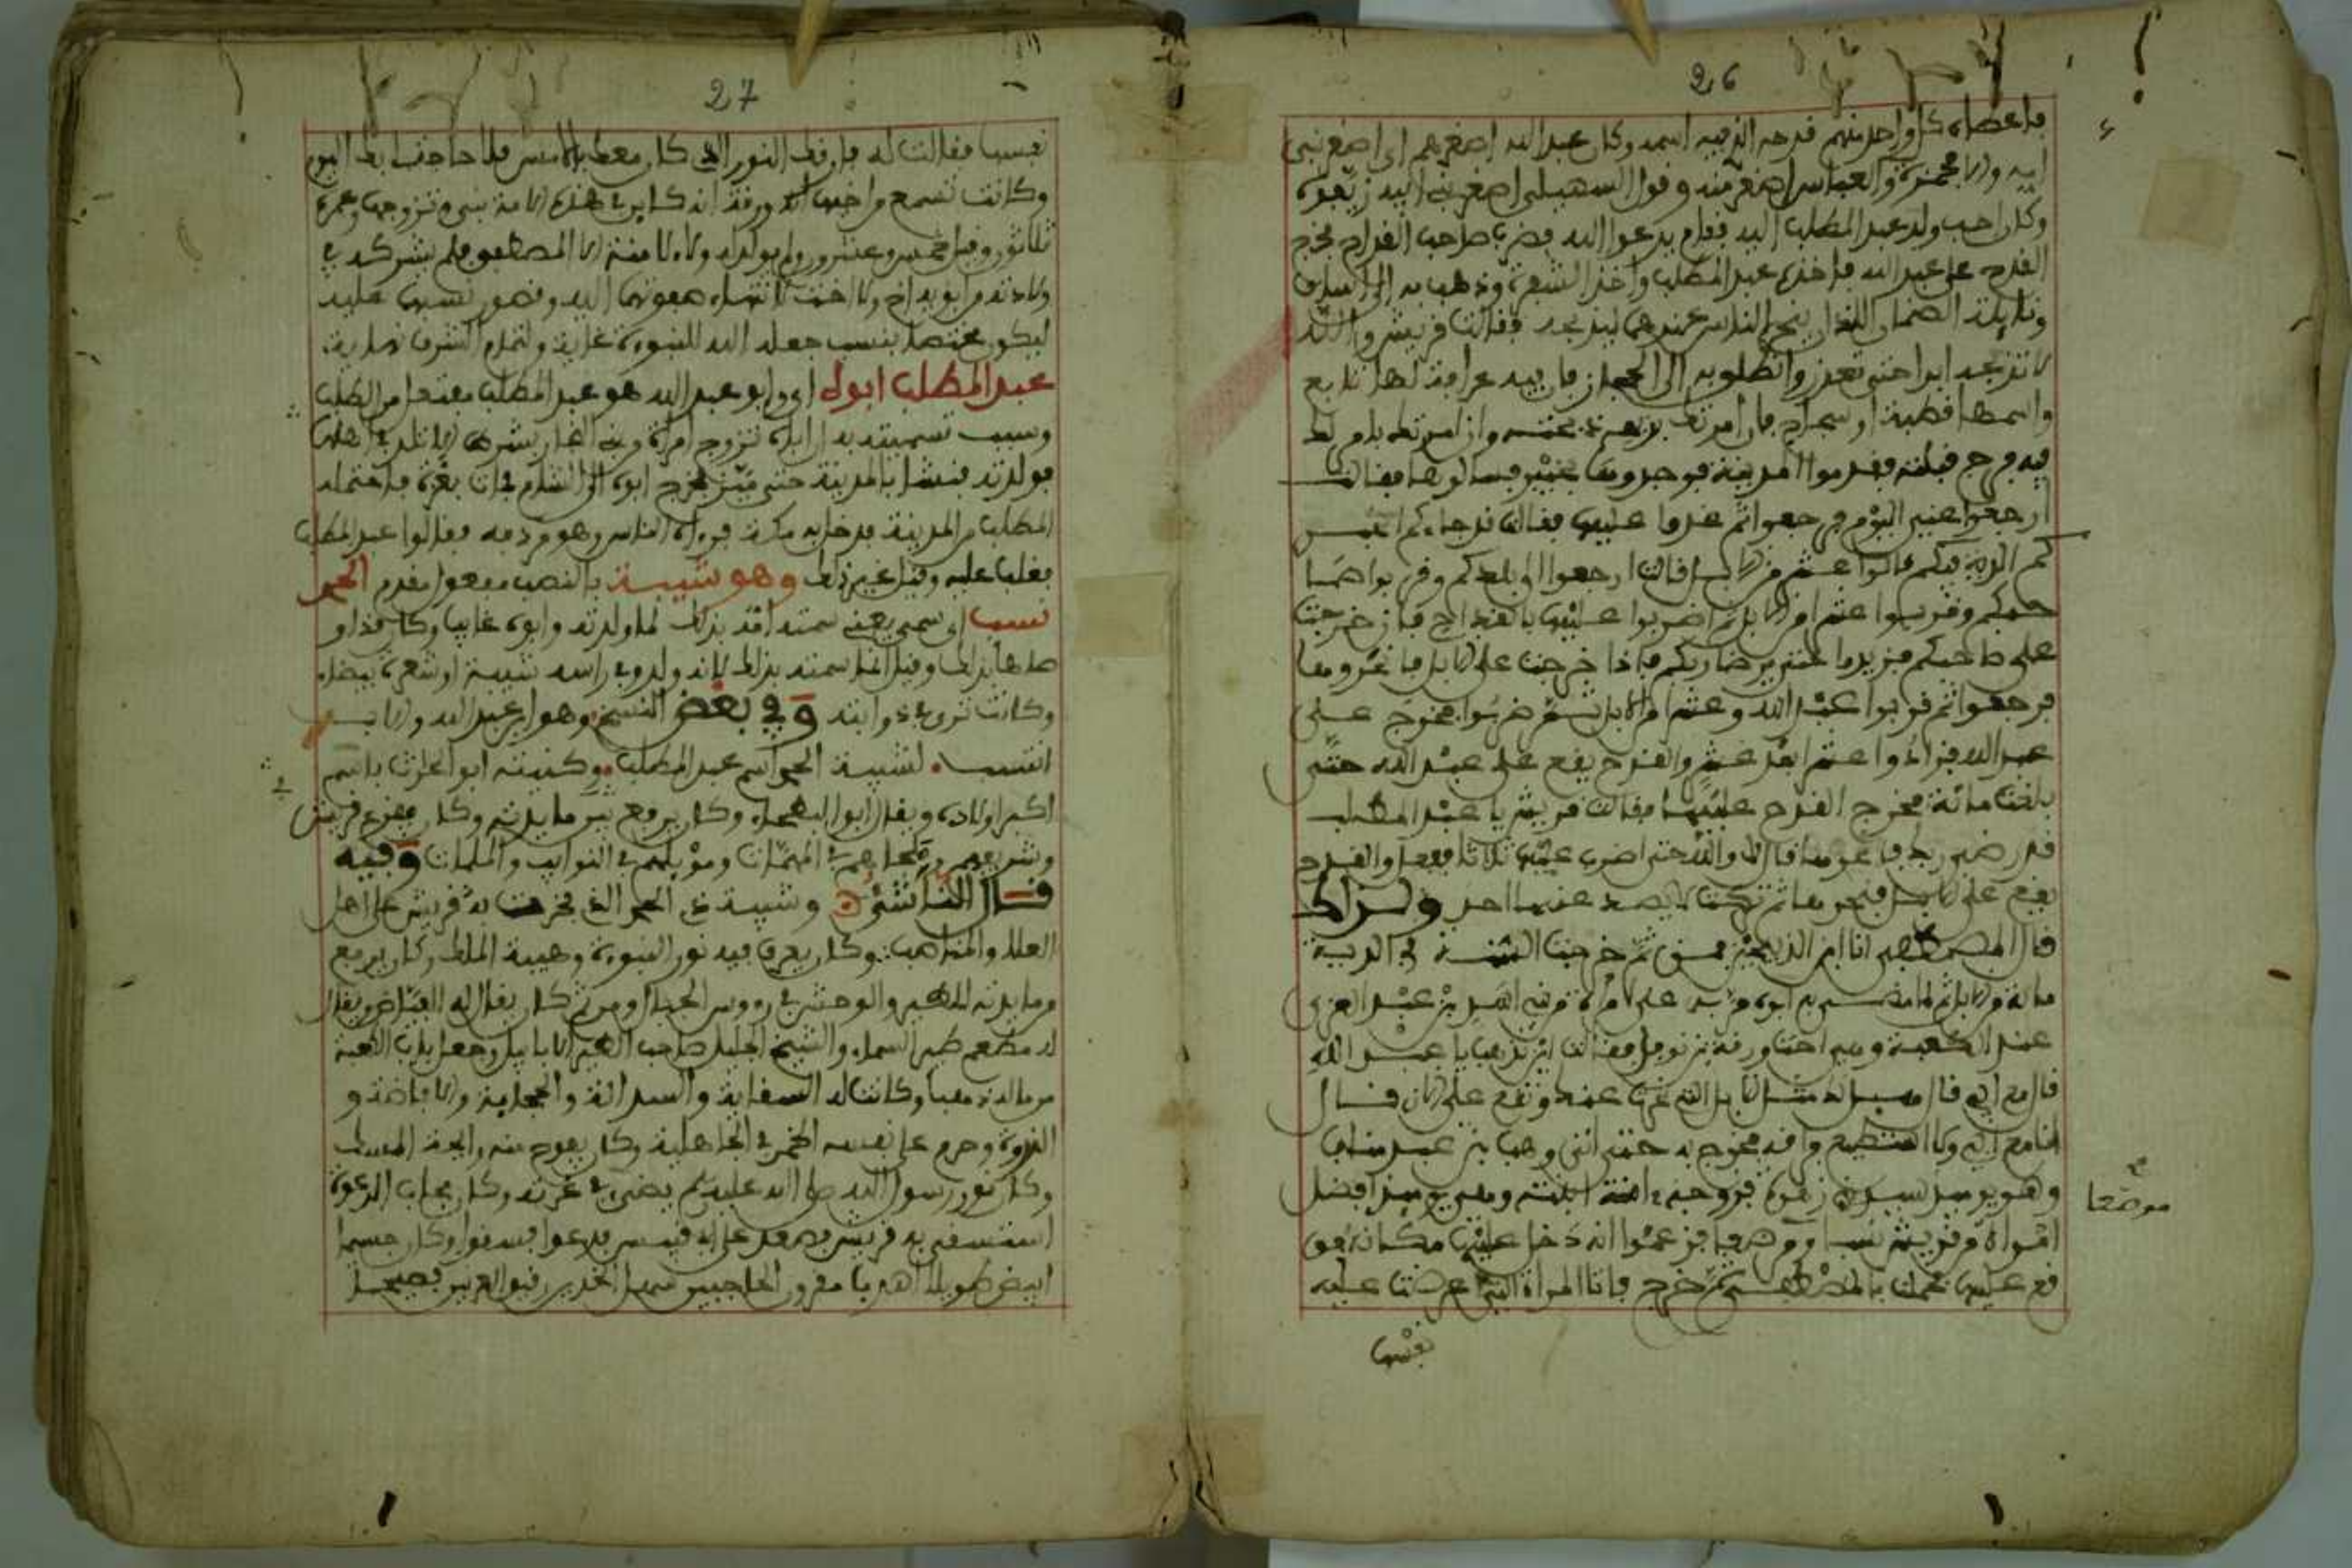 26
فاعطاه كل واحد منهم قدحه الذي فيه اسمه وكان عبد الله اصغرهم اي اصغر بني
ابيه والا فحمزة والعباس اصغر منه وقول السهيلي اصغر بني ابيه
وكان احب ولد عبد المطلب اليه فقام يدعو الله فضرب صاحب القداح فخرج
القدح على عبد الله فاخذه عبد المطلب واخذ الشفرة وذهب به الى اساف
ونايلة الصنمان اللذان ينحر الناس عندهما ليذبحه فقالت قريش والله
لا تذبحه ابدا حتى تعذر وانطلق به الى الحجاز فان به عرافة لها تابع
واسمها قطبة او سجاح فان امرتك بذبحه ذبحته وان امرتك بامر لك
فيه فرج قبلته فقدموا المدينة فوجدوها بخيبر فسالوها فقالت
ارجعوا عني اليوم فرجعوا ثم غدوا عليها فقالت قد جاءكم الخبر
كم الدية فيكم قالوا عشر من الابل قالت ارجعوا الى بلدكم وقربوا صا
حبكم وقربوا عشرا من الابل ثم اضربوا عليها بالقداح فان خرجت
على صاحبكم فزيدوا حتى يرضى ربكم فاذا خرجت على الابل فانحروها
فرجعوا ثم قربوا عبد الله وعشرا من الابل ثم ضربوا فخرج على
عبد الله فزادوا عشرا بعد عشر والقدح يقع على عبد الله حتى
بلغت مائة فخرج القدح عليها فقالت قريش يا عبد المطلب
قد رضي ربك فاغرمها قال لا والله حتى اضرب عليها ثلاثا ففعل والقدح
يقع على الابل فنحرها ثم تركت لا يصد عنها احد ولذلك
قال المصطفى انا ابن الذبيحين فمن ثم خرجت السنة في الدية
مائة من الابل ثم لما مضى به ابوه مر به على امراة من بني اسد بن عبد العزى
عند الكعبة وهي اخت ورقة بن نوفل فقالت اين تذهب يا عبد الله
قال مع ابي قالت لك مثل الابل التي نحرت عنك وتقع علي الان قال
انا مع ابي ولا استطيع فراقه فخرج به حتى اتى وهب بن عبد مناف
وهو يومئذ سيد بني زهرة فزوجه امنة ابنته وهي يومئذ افضل
امراة من قريش نسبا وموضعا فزعموا انه دخل عليها مكانه فو
قع عليها فحملت بالمصطفى ثم خرج فاتى المراة التي عرضت عليه
نفسها
موضعا
صح
27
نفسها فقالت له فارقك النور الذي كان معك بالامس فلا حاجة لي بك اليوم
وكانت تسمع من اخيها ورقة انه كاين في هذه الامة نبي وتزوجها وعمره
ثلاثون وقيل خمس وعشرون ولم يولد له ولا لامنة الا المصطفى فلم يشركه في
ولادته من ابويه اخ ولا اخت لانتهاء صفوتهما اليه وقصور نسبهما عليه
ليكون مختصا بنسب جعله الله للنبوة غاية ولتمام الشرف نهاية
عبد المطلب ابوه اي وابو عبد الله هو عبد المطلب مفتعل من الطلب
وسبب تسميته به ان اباه تزوج امراة من بني النجار بشرط الا تلد الا في اهلها
فولدته فنشا بالمدينة حتى ميز فخرج ابوه الى الشام فمات بغزة فاحتمله
المطلب من المدينة فدخل به مكة فرءاه الناس وهو مردفه فقالوا عبد المطلب
فغلب عليه وقيل غير ذلك وهو شيبة بالنصب مفعول مقدم الحمد
نسب اي سمي يعني سمته امه بذلك لما ولدته وابوه غايبا وكان
وقيل انما سمته بذلك لانه ولد وفي راسه شيبة او شعرة بيضاء
وكانت ترى في ذوابته وفي بعض النسخ وهو ابن عبد الله والاب
انتسب لشيبة الحمد اسم عبد المطلب وكنيته ابو الحارث باسم
اكبر اولاده ويقال ابو البطحاء وكان يرفع من مائدته وكان مفزع قريش
وشريفهم وملجاهم في المهمات ومويلهم في النوايب والملمات وفيه
قال الناشئ وشيبة ذي الحمد الذي فخرت به قريش على اهل
العلا والمناصب وكان يعرف فيه نور النبوة وهيبة الملك وكان يرفع
من مايدته للطير والوحش في رءوس الجبال ومن ثم كان يقال له الفياض ويقال
له مطعم طير السماء والشيخ الجليل صاحب الطير الابابيل وجعل باب الكعبة
من ماله ذهبا وكانت له السقاية والسدانة والحجابة والافاضة و
الندوة وحرم على نفسه الخمر في الجاهلية وكان يفوح منه رايحة المسك
وكان نور رسول الله صلى الله عليه وسلم يضيء في غرته وكان مجاب الدعوة
استسقى به قريش فصعد على ابي قبيس فدعوا فسقوا وكان جسيما
ابيض طويلا اهدب مقرون الحاجبين سهل الخدين رقيق العرنين فصيحا